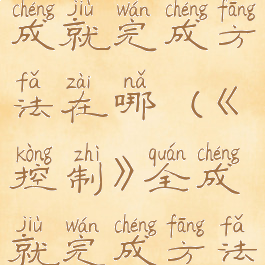 chéng jiù wán chéng fāng
成就完成方
fǎ zài nǎ
法在哪（《
kòng zhì quán chéng
控制》全成
jiù wán chéng fāng fǎ
就完成方法